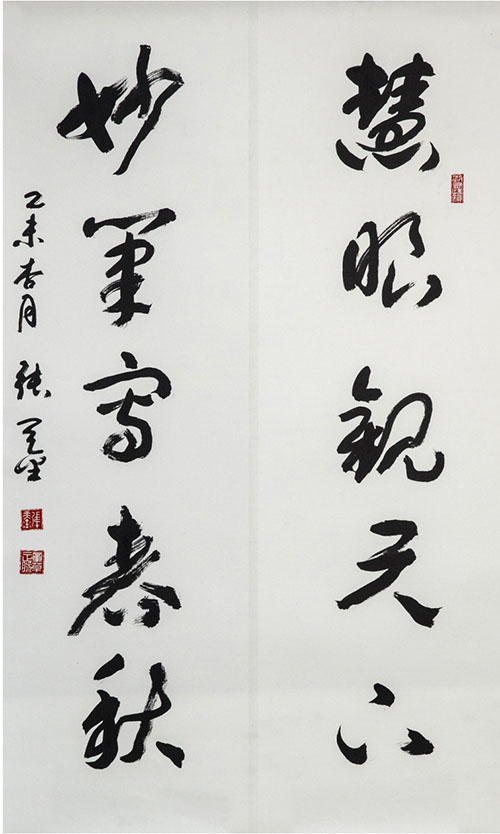 慧眼觀天下
妙筆寫春秋
乙未杏月 張